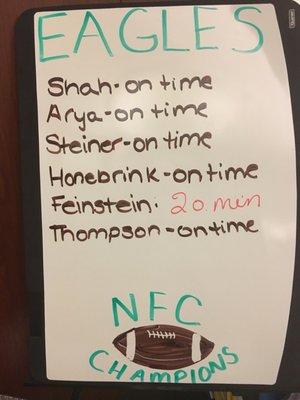 EAGLES
Shah-on time
Arya-on time
Steiner-on time
Honebrink-on time
Feinstein. 20 min
Thompson-on time
NFC
CHAMPIONS